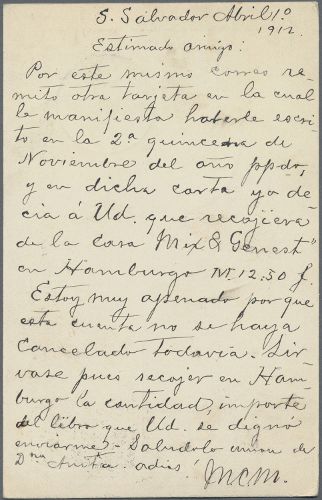 S. Salvador Abril 1º
1912.
Estimado amigo:
Por este mismo correo re-
mito otra tarjeta en la cual
le manifiesta haberle escri-
to en la 2ª quincena de
Noviembre del año ppdo,
y en dicha carta ya de-
cia á Ud. que recojiera
de la Casa Mix & Genest"
en Hamburgo M 12.50 f.
Estoy muy apenado por que
esta cuenta no se haya
Cancelado todavia. Sir-
vase pues recojer en Ham-
burgo la cantidad, importe
del libro que Ud. se dignó
enviarme - Saludolo union de
Dna Anita. adios
MCM.